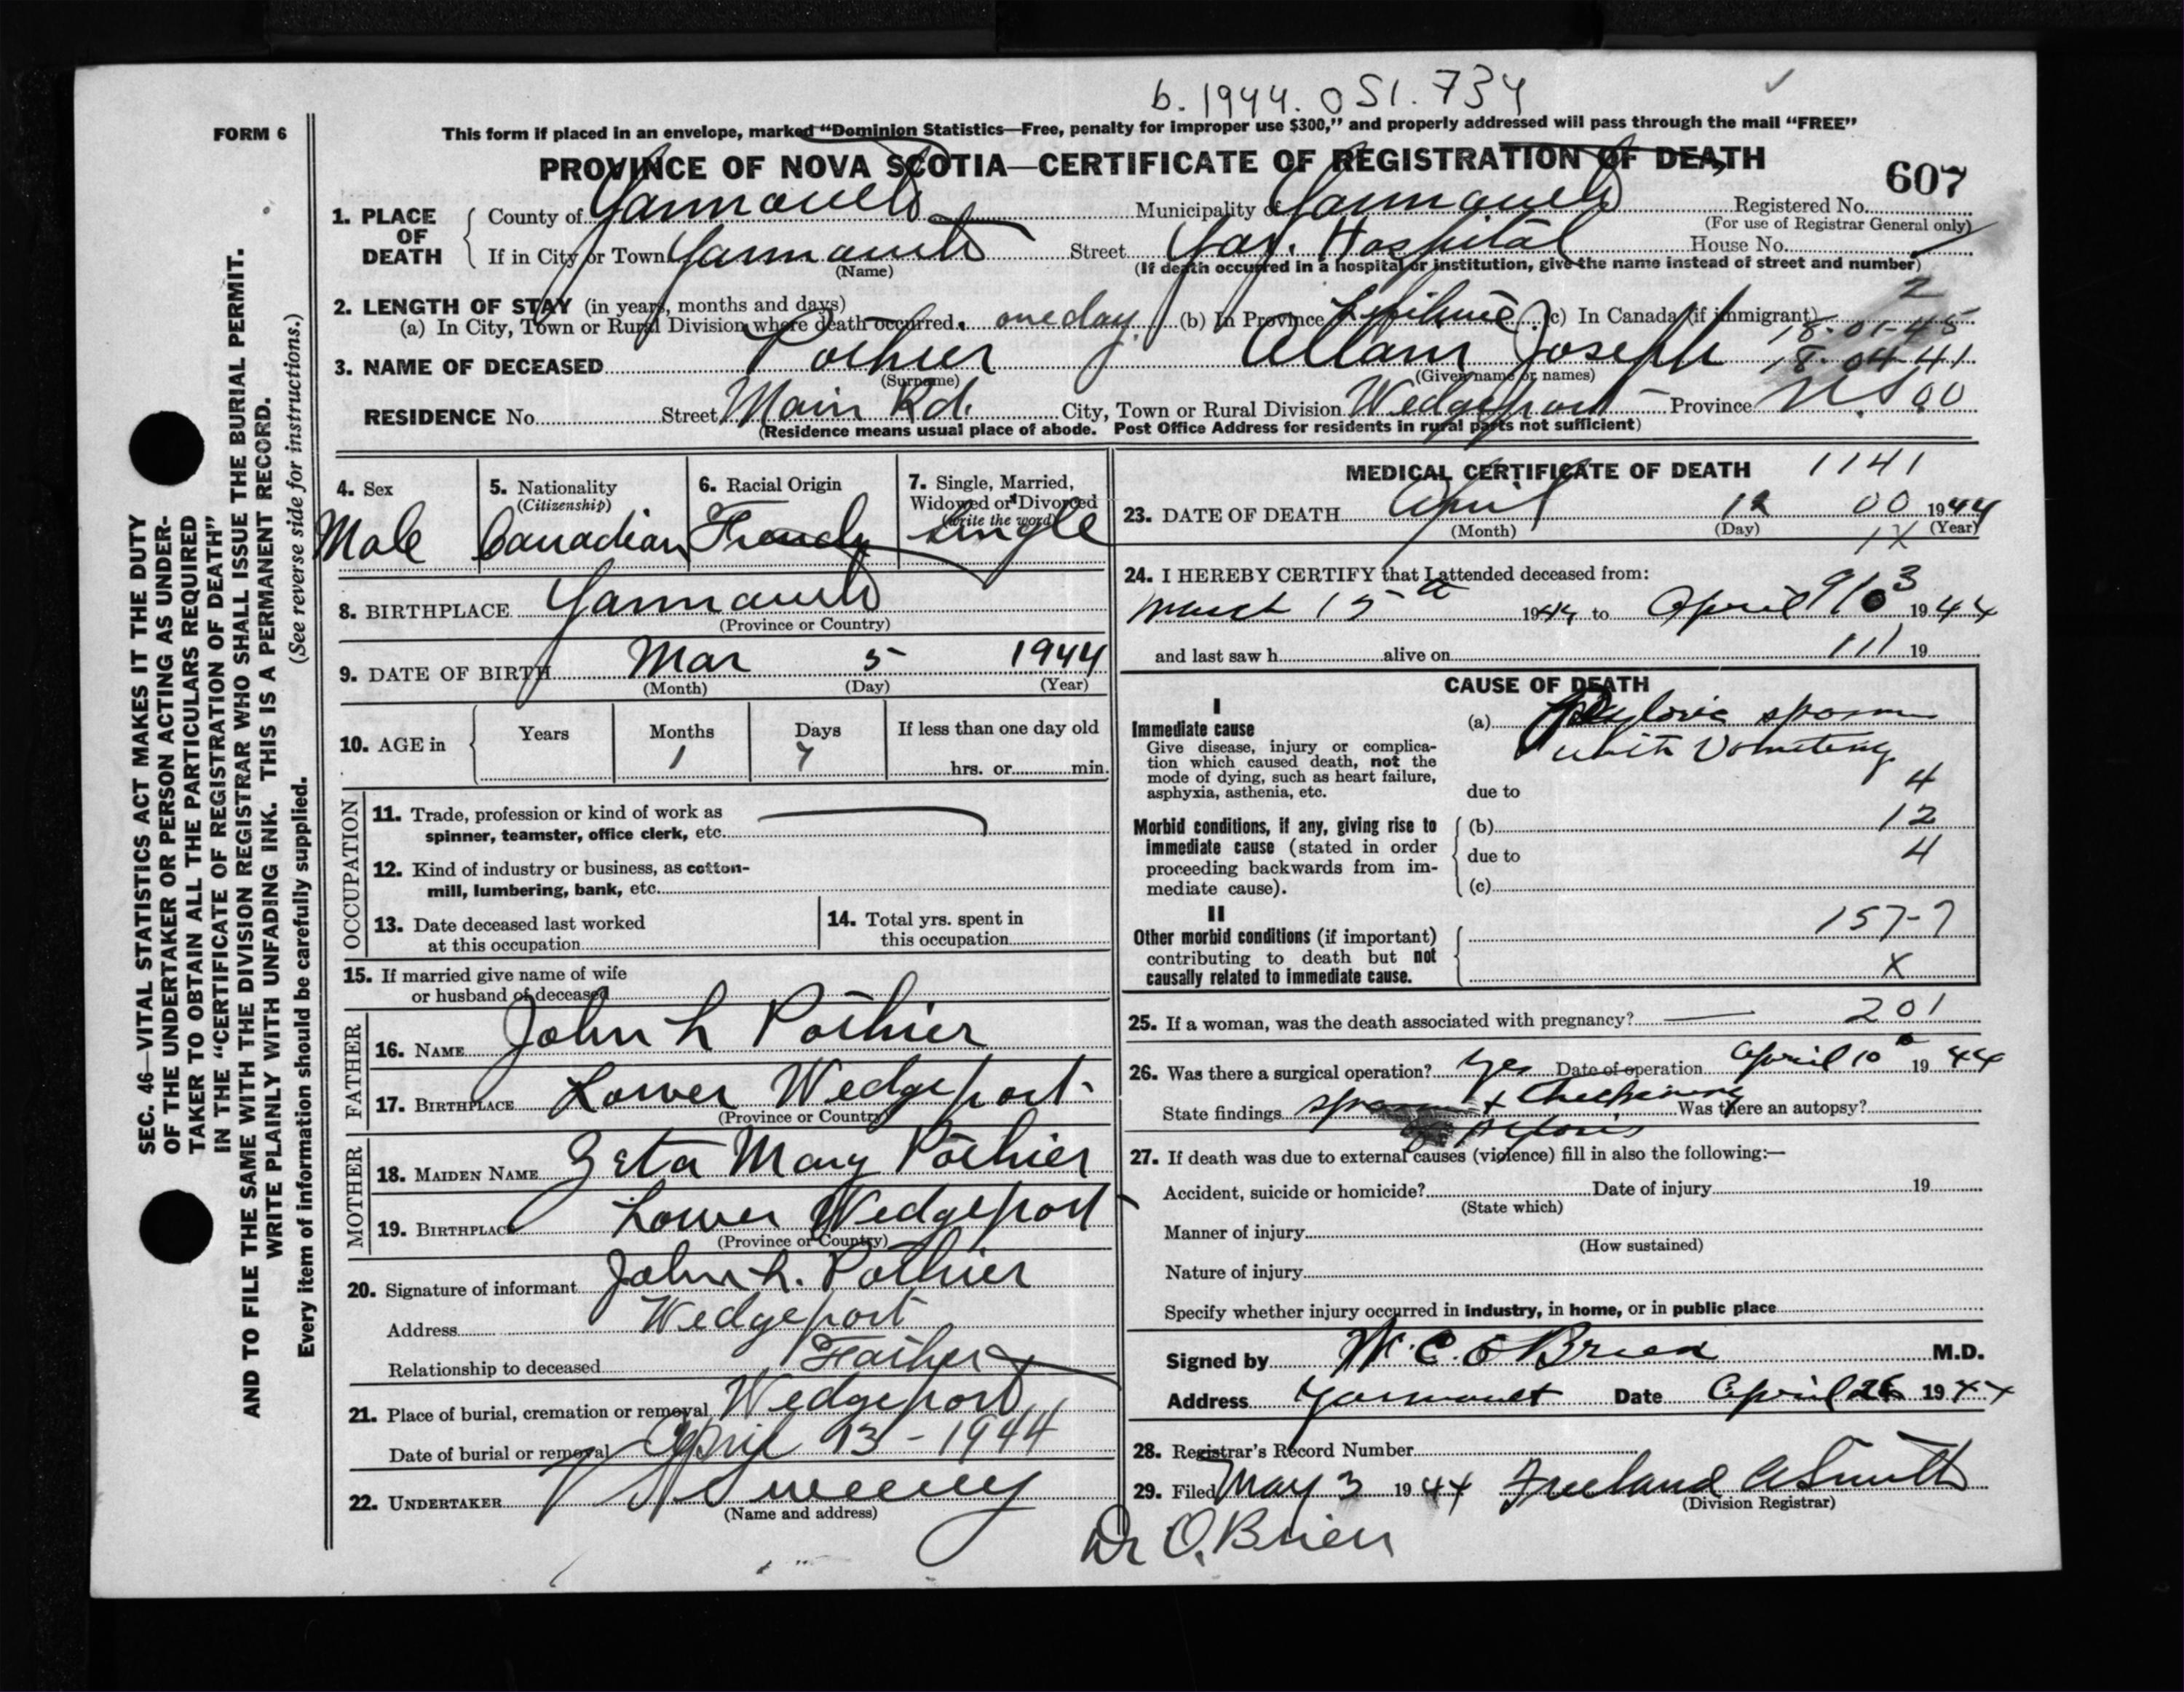 b. 1944. 051. 734
FORM 6
This form if placed in an envelope, marked "Dominion Statistics—Free, penalty for improper use $300," and properly addressed will pass through the mail "FREE"
PROVINCE OF NOVA SCOTIA—CERTIFICATE OF REGISTRATION OF DEATH
607
1. PLACE OF DEATH
County of Yarmouth Municipality of Yarmouth Registered No.
(For use of Registrar General only)
If in City or Town Yarmouth Street Yar. Hospital House No.
(Name) (If death occurred in a hospital or institution, give the name instead of street and number)
2. LENGTH OF STAY (in years, months and days) 2
(a) In City, Town or Rural Division where death occurred. one day (b) In Province Lifetime (c) In Canada (if immigrant) 18-01-45
3. NAME OF DECEASED Pothier Allan Joseph 18-04-41
(Surname) (Given name or names)
RESIDENCE No. Street Main Rd. City, Town or Rural Division Wedgeport Province N.S 00
(Residence means usual place of abode. Post Office Address for residents in rural parts not sufficient)
SEC. 46—VITAL STATISTICS ACT MAKES IT THE DUTY
OF THE UNDERTAKER OR PERSON ACTING AS UNDER-
TAKER TO OBTAIN ALL THE PARTICULARS REQUIRED
IN THE "CERTIFICATE OF REGISTRATION OF DEATH"
AND TO FILE THE SAME WITH THE DIVISION REGISTRAR WHO SHALL ISSUE THE BURIAL PERMIT.
WRITE PLAINLY WITH UNFADING INK. THIS IS A PERMANENT RECORD.
Every item of information should be carefully supplied. (See reverse side for instructions.)
4. Sex Male
5. Nationality (Citizenship) Canadian
6. Racial Origin French
7. Single, Married, Widowed or Divorced (write the word) Single
8. BIRTHPLACE Yarmouth
(Province or Country)
9. DATE OF BIRTH Mar 5 1944
(Month) (Day) (Year)
10. AGE in Years Months 1 Days 7 If less than one day old
hrs. or min.
OCCUPATION
11. Trade, profession or kind of work as
spinner, teamster, office clerk, etc.
12. Kind of industry or business, as cotton-
mill, lumbering, bank, etc.
13. Date deceased last worked
at this occupation
14. Total yrs. spent in
this occupation
15. If married give name of wife
or husband of deceased
FATHER
16. NAME John L Pothier
17. BIRTHPLACE Lower Wedgeport
(Province or Country)
MOTHER
18. MAIDEN NAME Zeta Mary Pothier
19. BIRTHPLACE Lower Wedgeport
(Province or Country)
20. Signature of informant John L. Pothier
Address Wedgeport
Relationship to deceased Father
21. Place of burial, cremation or removal Wedgeport
Date of burial or removal April 13-1944
22. UNDERTAKER V Sweeny
(Name and address)
MEDICAL CERTIFICATE OF DEATH 1141
23. DATE OF DEATH April 12 00 1944
(Month) (Day) 1X (Year)
24. I HEREBY CERTIFY that I attended deceased from:
March 15th 1944 to April 9/10 3 1944
and last saw h alive on 111 19
CAUSE OF DEATH
I
Immediate cause
Give disease, injury or complica-
tion which caused death, not the
mode of dying, such as heart failure,
asphyxia, asthenia, etc.
(a) Pyloric spasm
with Vomiting
4
due to
Morbid conditions, if any, giving rise to
immediate cause (stated in order
proceeding backwards from im-
mediate cause).
(b) 12
due to 4
(c)
II
Other morbid conditions (if important)
contributing to death but not
causally related to immediate cause.
157-7
X
25. If a woman, was the death associated with pregnancy? 201
26. Was there a surgical operation? Yes Date of operation April 10th 1944
State findings spasm + thickening Was there an autopsy?
of pyloris
27. If death was due to external causes (violence) fill in also the following:—
Accident, suicide or homicide? Date of injury 19
(State which)
Manner of injury
(How sustained)
Nature of injury
Specify whether injury occurred in industry, in home, or in public place
Signed by W. C. O'Brien M.D.
Address Yarmouth Date April 26 1944
28. Registrar's Record Number
29. Filed May 3 1944 Freeland A Smith
(Division Registrar)
Dr O.Brien